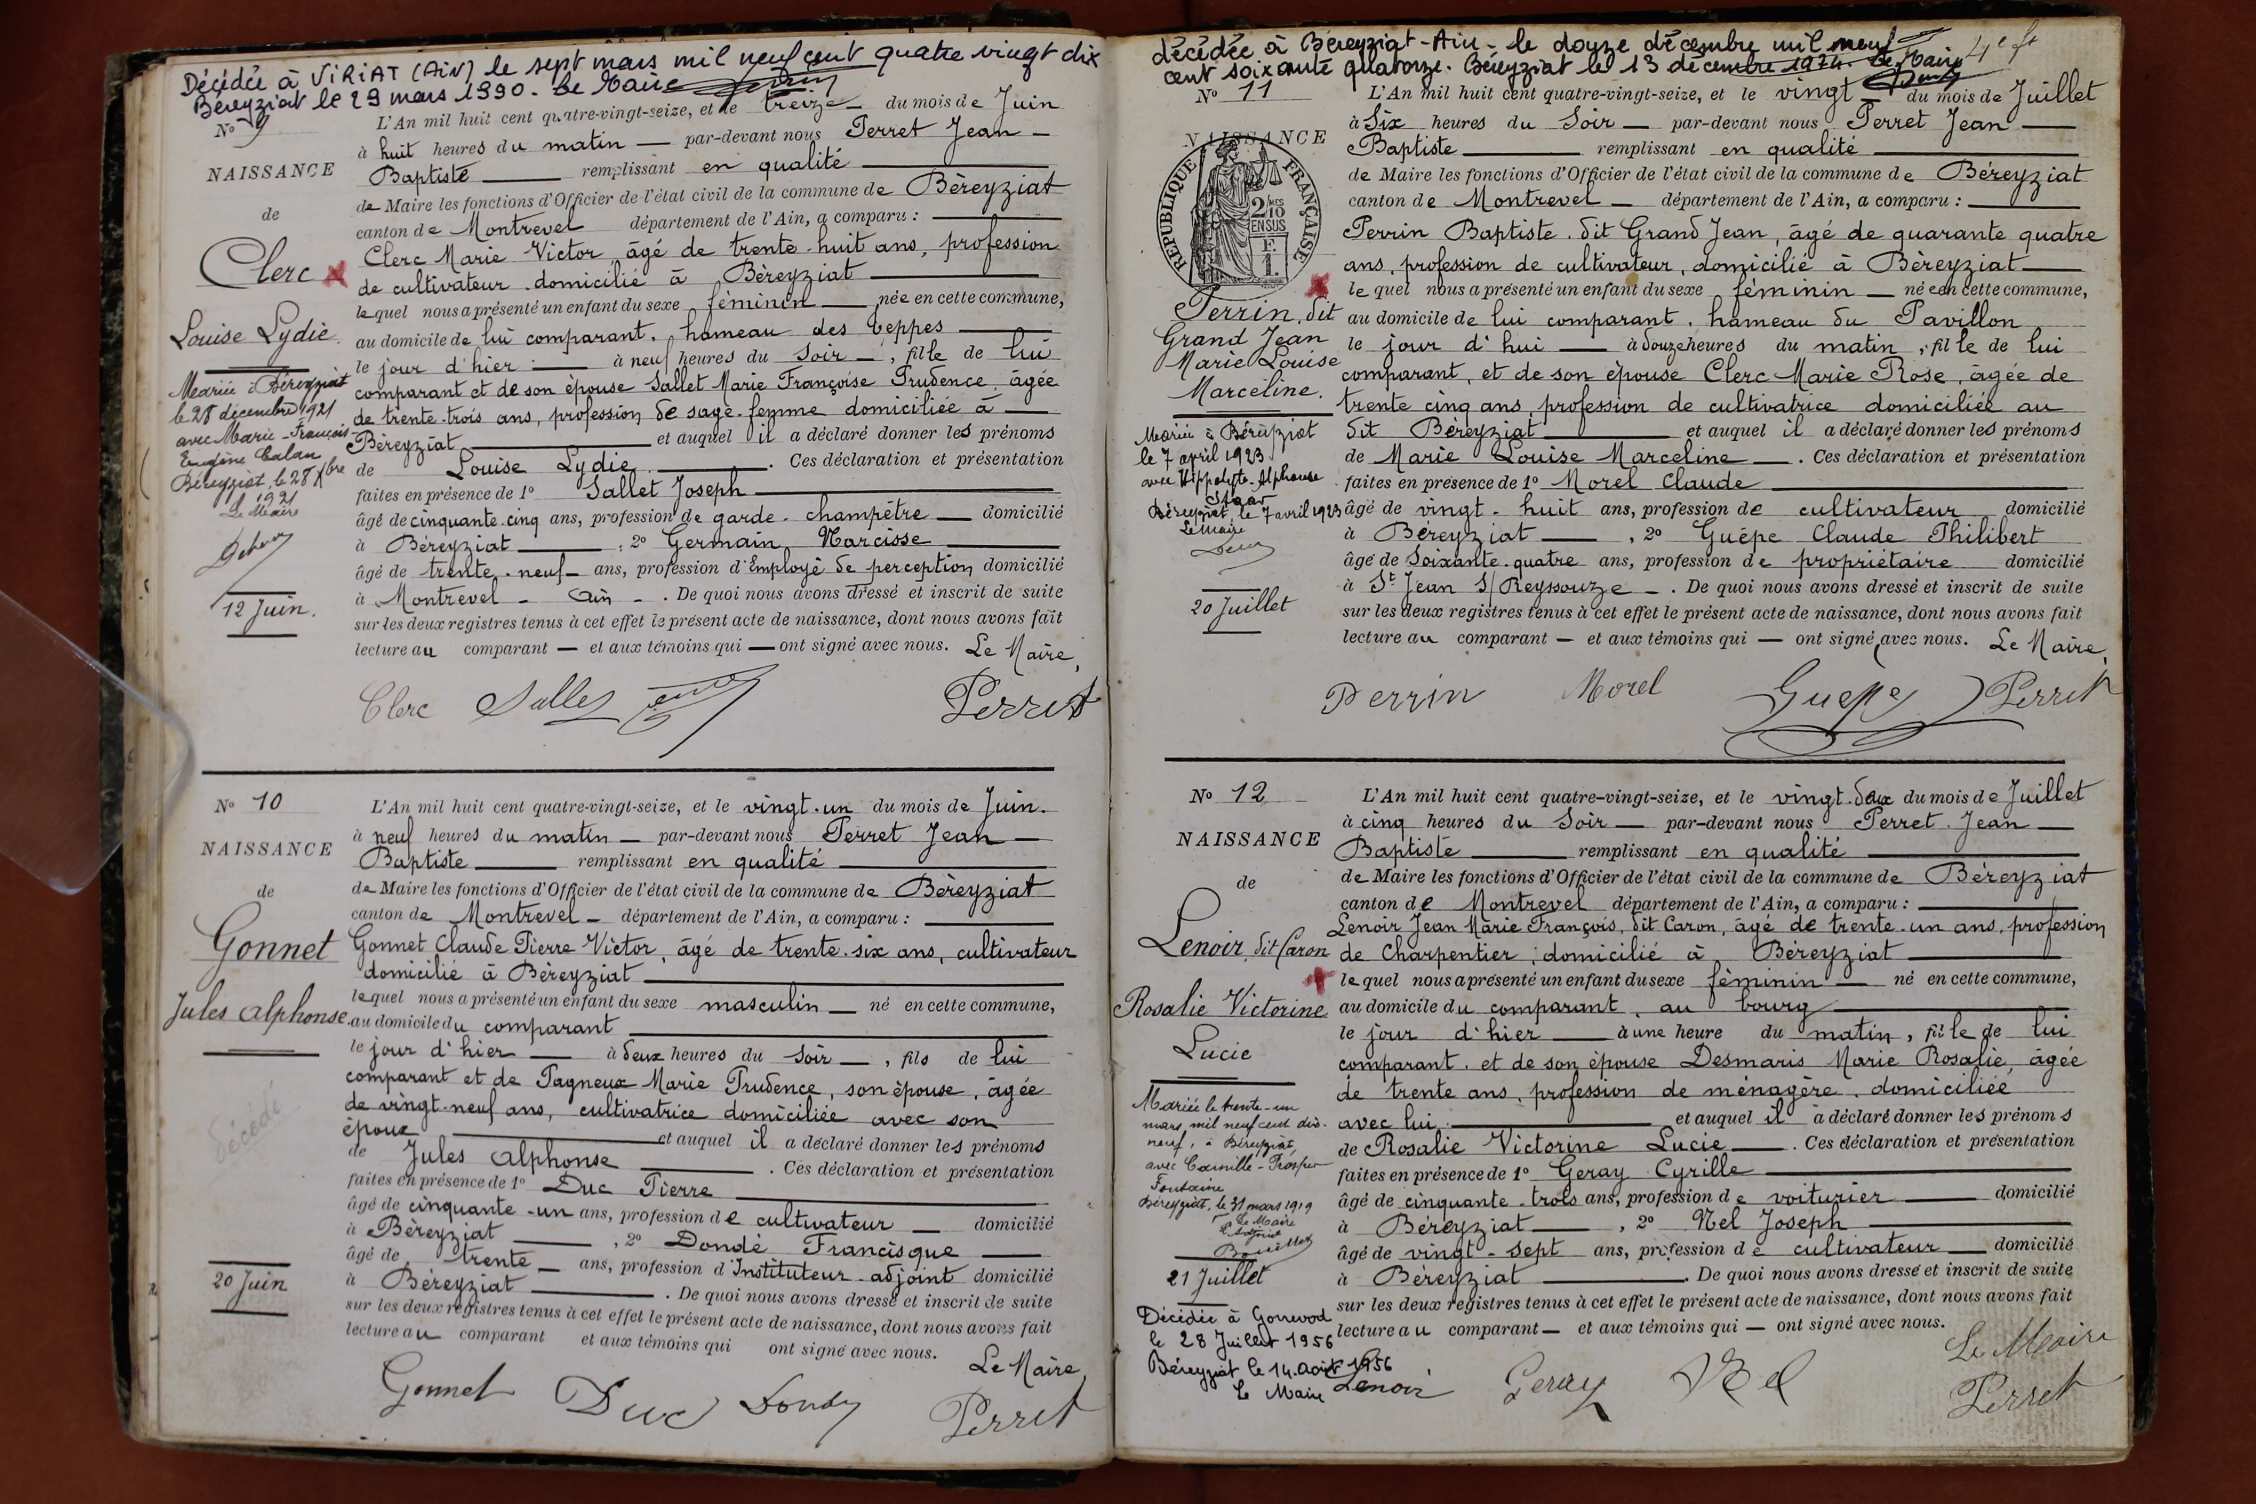 Décédée à VIRIAT (AIN) le sept mars mil neuf cent quatre vingt dix
Béreyziat le 29 mars 1990. Le Maire
No 9
NAISSANCE
de
Clerc
Louise Lydie.
Mariée à Béreyziat
le 28 décembre 1921
avec Marie-François-
Eugène Calan
Béreyziat, le 28 Xbre
1921
Le Maire
12 Juin.
L'An mil huit cent quatre-vingt-seize, et le treize du mois de Juin
à huit heures du matin par-devant nous Perret Jean
Baptiste remplissant en qualité
de Maire les fonctions d'Officier de l'état civil de la commune de Béreyziat
canton de Montrevel département de l'Ain, a comparu :
Clerc Marie Victor, âgé de trente-huit ans, profession
de cultivateur domicilié à Béreyziat
lequel nous a présenté un enfant du sexe féminin née en cette commune,
au domicile de lui comparant, hameau des Teppes
le jour d'hier à neuf heures du Soir, fille de lui
comparant et de son épouse Sallet Marie Françoise Prudence, âgée
de trente-trois ans, profession de sage-femme domiciliée à
Béreyziat et auquel il a déclaré donner les prénoms
de Louise Lydie. Ces déclaration et présentation
faites en présence de 1o Sallet Joseph
âgé de cinquante-cinq ans, profession de garde-champêtre domicilié
à Béreyziat, 2o Germain Narcisse
âgé de trente-neuf ans, profession d'Employé de perception domicilié
à Montrevel - Ain -. De quoi nous avons dressé et inscrit de suite
sur les deux registres tenus à cet effet le présent acte de naissance, dont nous avons fait
lecture au comparant — et aux témoins qui — ont signé avec nous. Le Maire,
Clerc Sallet Perret
No 10
NAISSANCE
de
Gonnet
Jules Alphonse.
décédé
20 Juin
L'An mil huit cent quatre-vingt-seize, et le vingt-un du mois de Juin.
à neuf heures du matin — par-devant nous Perret Jean —
Baptiste remplissant en qualité
de Maire les fonctions d'Officier de l'état civil de la commune de Béreyziat
canton de Montrevel — département de l'Ain, a comparu :
Gonnet Claude Pierre Victor, âgé de trente-six ans, cultivateur
domicilié à Béreyziat
lequel nous a présenté un enfant du sexe masculin — né en cette commune,
au domicile du comparant
le jour d'hier — à deux heures du Soir —, fils de lui
comparant et de Pagneux Marie Prudence, son épouse, âgée
de vingt-neuf ans, cultivatrice domiciliée avec son
époux et auquel il a déclaré donner les prénoms
de Jules Alphonse. Ces déclaration et présentation
faites en présence de 1o Duc Pierre
âgé de cinquante-un ans, profession de cultivateur — domicilié
à Béreyziat, 2o Dondé Francisque
âgé de trente — ans, profession d'Instituteur-adjoint domicilié
à Béreyziat. De quoi nous avons dressé et inscrit de suite
sur les deux registres tenus à cet effet le présent acte de naissance, dont nous avons fait
lecture au comparant et aux témoins qui ont signé avec nous. Le Maire
Gonnet Duc Dondé Perret
décédée à Béreyziat-Ain- le douze décembre mil neuf
cent soixante quatorze. Béreyziat le 13 décembre 1974. Le Maire
No 11
NAISSANCE
RÉPUBLIQUE FRANÇAISE
2/10 EN SUS
F. 1.
Perrin, dit
Grand Jean
Marie Louise
Marceline.
Mariée à Béréyziat
le 7 avril 1923
avec Hippolyte-Alphonse
Béreyziat, le 7 avril 1923
Le Maire
20 Juillet
L'An mil huit cent quatre-vingt-seize, et le vingt — du mois de Juillet
à Six heures du Soir — par-devant nous Perret Jean —
Baptiste remplissant en qualité
de Maire les fonctions d'Officier de l'état civil de la commune de Béreyziat
canton de Montrevel — département de l'Ain, a comparu :
Perrin Baptiste, dit Grand Jean, âgé de quarante quatre
ans, profession de cultivateur, domicilié à Béreyziat
lequel nous a présenté un enfant du sexe féminin — née en cette commune,
au domicile de lui comparant, hameau du Pavillon
le jour d'hui — à douze heures du matin, fille de lui
comparant, et de son épouse Clerc Marie Rose, âgée de
trente cinq ans, profession de cultivatrice domiciliée au
dit Béreyziat et auquel il a déclaré donner les prénoms
de Marie Louise Marceline —. Ces déclaration et présentation
faites en présence de 1o Morel Claude
âgé de vingt-huit ans, profession de cultivateur domicilié
à Béreyziat, 2o Guépe Claude Philibert
âgé de Soixante-quatre ans, profession de propriétaire domicilié
à St Jean S/Reyssouze -. De quoi nous avons dressé et inscrit de suite
sur les deux registres tenus à cet effet le présent acte de naissance, dont nous avons fait
lecture au comparant — et aux témoins qui — ont signé avec nous. Le Maire,
Perrin Morel Guépe Perret
No 12
NAISSANCE
de
Lenoir, dit Caron
Rosalie Victorine
Lucie
Mariée le trente-un
mars mil neuf cent dix-
neuf, à Béreyziat,
avec Camille-Prosper
Fontaine
Béreyziat, le 31 mars 1919
Le Maire
21 Juillet
Décédée à Gorrevod
le 28 Juillet 1956
Béreyziat le 14 Août 1956
Le Maire
L'An mil huit cent quatre-vingt-seize, et le vingt-deux du mois de Juillet
à cinq heures du Soir — par-devant nous Perret Jean —
Baptiste remplissant en qualité
de Maire les fonctions d'Officier de l'état civil de la commune de Béreyziat
canton de Montrevel département de l'Ain, a comparu :
Lenoir Jean Marie François, dit Caron, âgé de trente-un ans, profession
de Charpentier, domicilié à Béreyziat
lequel nous a présenté un enfant du sexe féminin — né en cette commune,
au domicile du comparant, au bourg
le jour d'hier — à une heure du matin, fille de lui
comparant, et de son épouse Desmaris Marie Rosalie, âgée
de trente ans, profession de ménagère, domiciliée
avec lui. et auquel il a déclaré donner les prénoms
de Rosalie Victorine Lucie —. Ces déclaration et présentation
faites en présence de 1o Geray Cyrille
âgé de cinquante-trois ans, profession de voiturier domicilié
à Béreyziat, 2o Nel Joseph
âgé de vingt-sept ans, profession de cultivateur domicilié
à Béreyziat. De quoi nous avons dressé et inscrit de suite
sur les deux registres tenus à cet effet le présent acte de naissance, dont nous avons fait
lecture au comparant — et aux témoins qui — ont signé avec nous.
Le Maire
Lenoir Geray Nel Perret